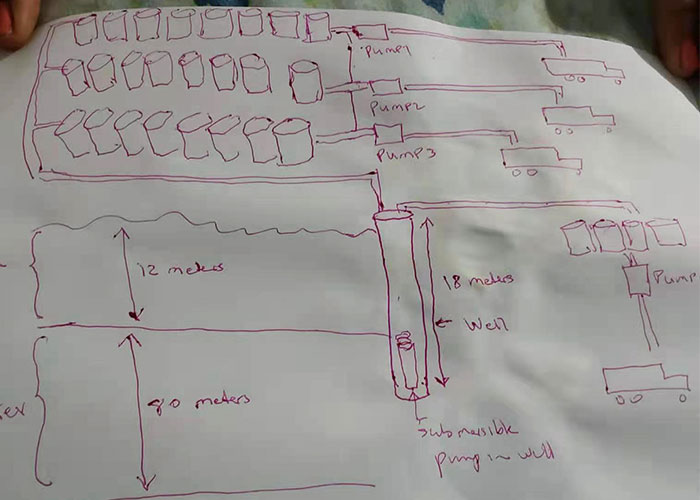 Pump1
Pump2
Pump3
12 meters
18 meters
Well
Pump
80 meters
Submersible
pump in well